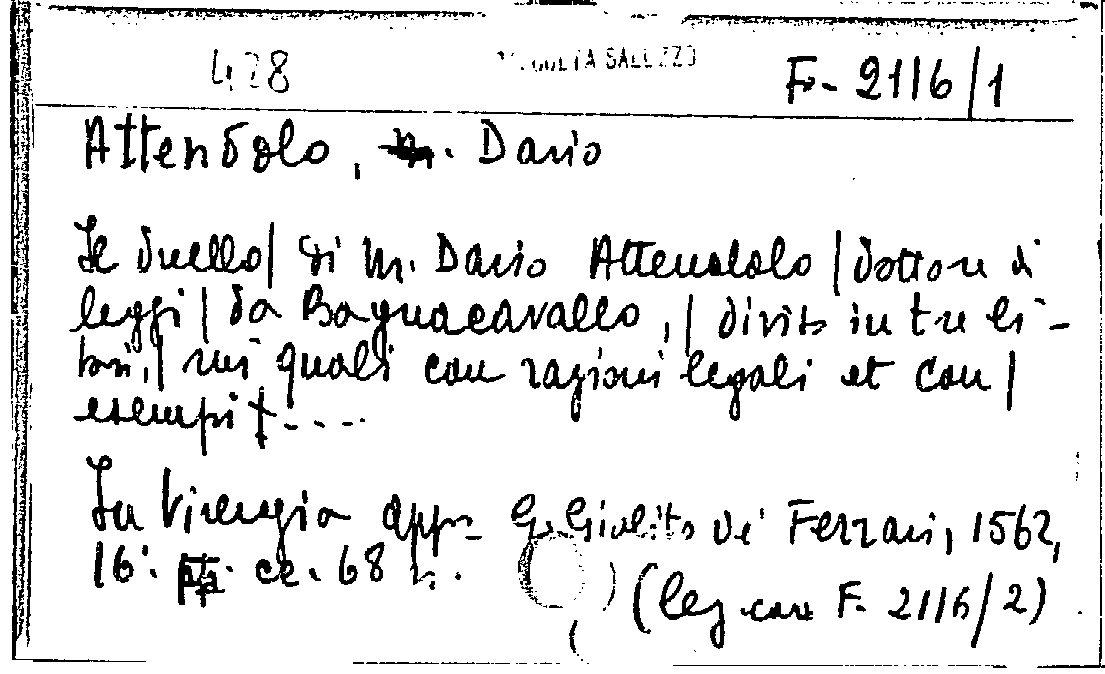 428 RACCOLTA SALUZZO F. 2116/1
Attendolo, Dario
Il duello/ di M. Dario Attendolo / dottore di
leggi / da Bagnacavallo, / diviso in tre li-
bri, / nei quali con ragioni legali et con /
esempi ....
In Vinegia app. G. Giolito de' Ferrari, 1562,
16°. cc. 68
(leg. con F. 2116/2)